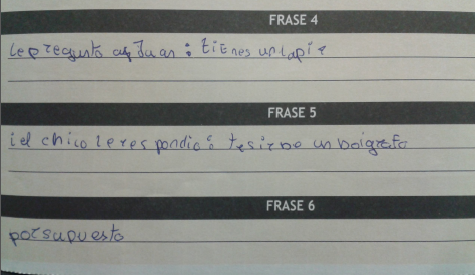 FRASE 4
le pregunto a Juan : tienes un lapiz
FRASE 5
i el chico le respondio : te sirve un boigrafo
FRASE 6
porsupuesto